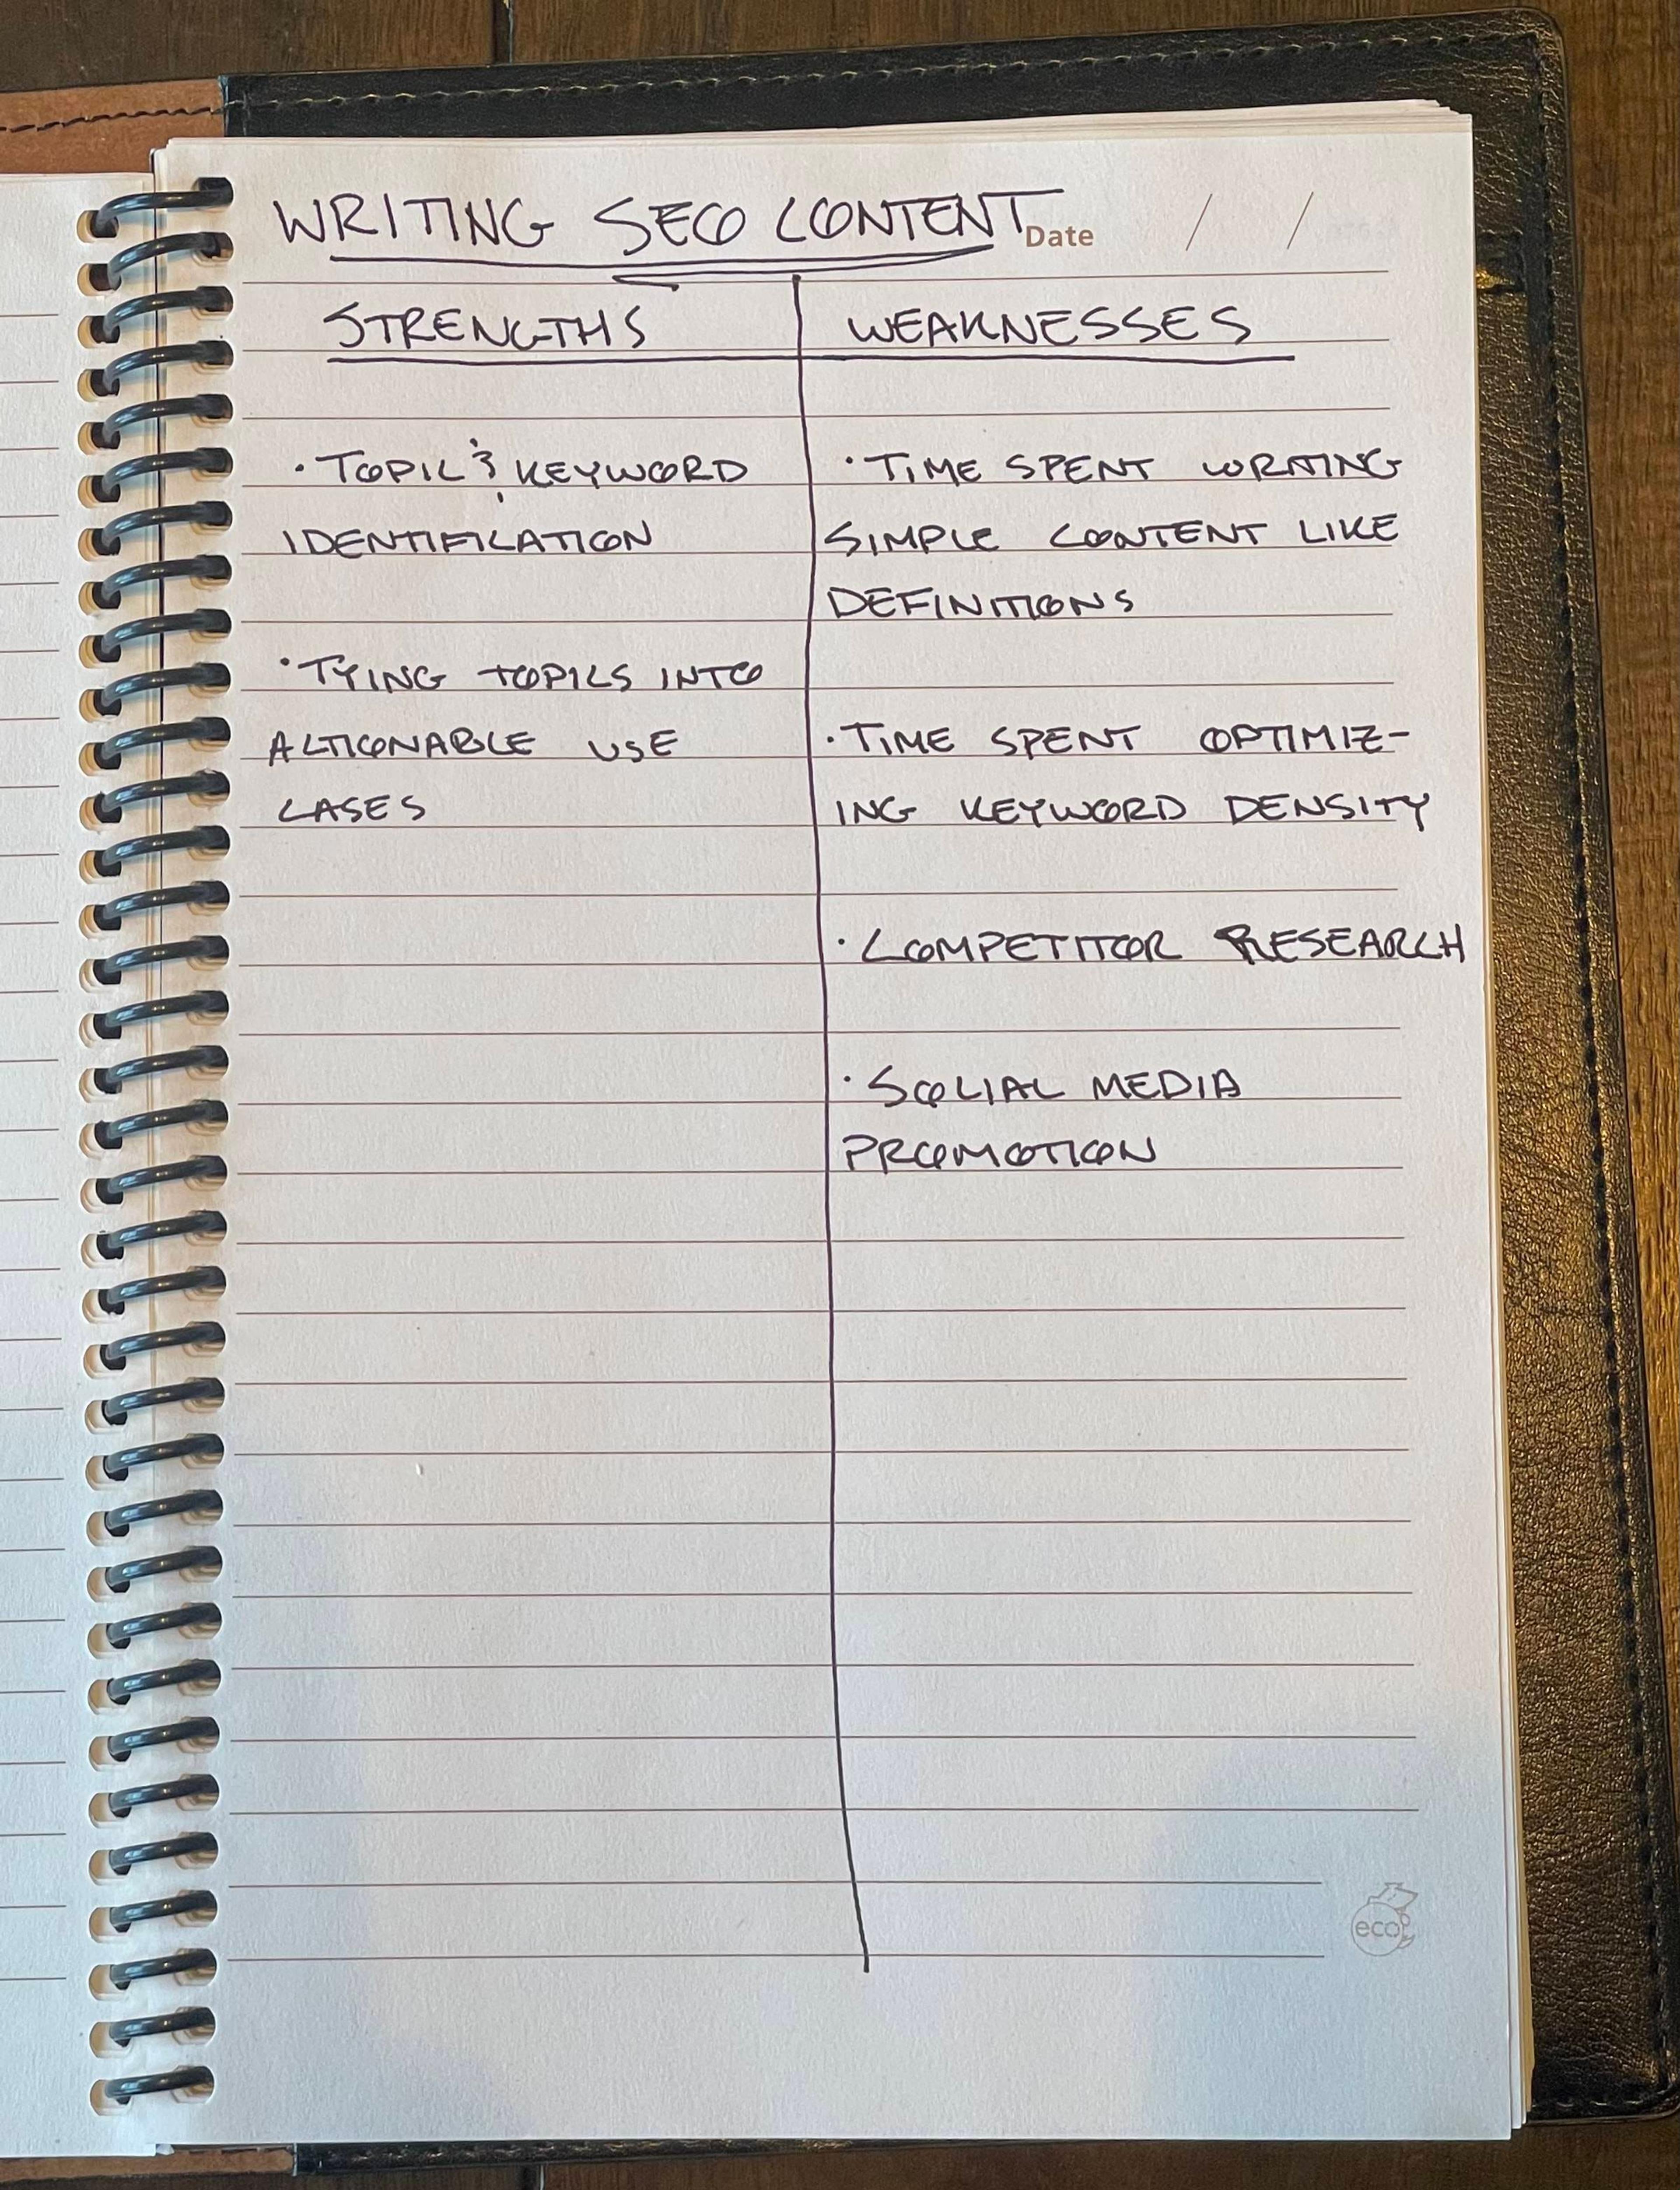 WRITING SEO CONTENT
Date / /
STRENGTHS
WEAKNESSES
• TOPIC & KEYWORD
IDENTIFICATION
• TYING TOPICS INTO
ACTIONABLE USE
CASES
• TIME SPENT WRITING
SIMPLE CONTENT LIKE
DEFINITIONS
• TIME SPENT OPTIMIZ-
ING KEYWORD DENSITY
• COMPETITOR RESEARCH
• SOCIAL MEDIA
PROMOTION
eco